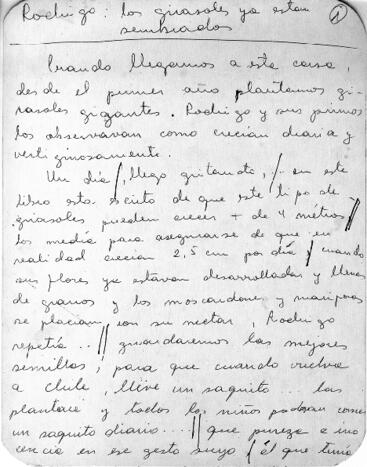 Rodrigo: los girasoles ya estan
sembrados
1
Cuando llegamos a esta casa,
desde el primer año plantamos gi-
rasoles gigantes. Rodrigo y sus primos
los observavan como crecian diaria y
vertiginosamente.
Un dia /, llego gritando, /.. en este
libro esta escrito de que este tipo de
girasoles pueden crecer + de 4 métros //
los media para asegurarse de que en
realidad crecian 2,5 cm por dia / cuando
sus flores ya estavan desarrolladas y llenas
de granos y los moscardones y mariposas
se placian con su nectar, Rodrigo
repetia .. // guardaremos las mejores
semillas, para que cuando vuelva
a Chile, lleve un saquito ... las
plantare y todos los niños podran comer
un saquito diario ... // que pureza e ino
cencia en ese gesto suyo / él que tenia